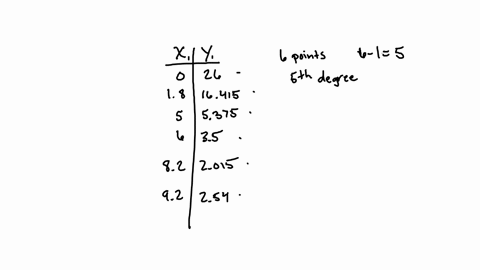 x₁ y₁
0 26
1.8 16.415
5 5.375
6 3.5
8.2 2.015
9.2 2.54
6 points 6-1=5
5th degree